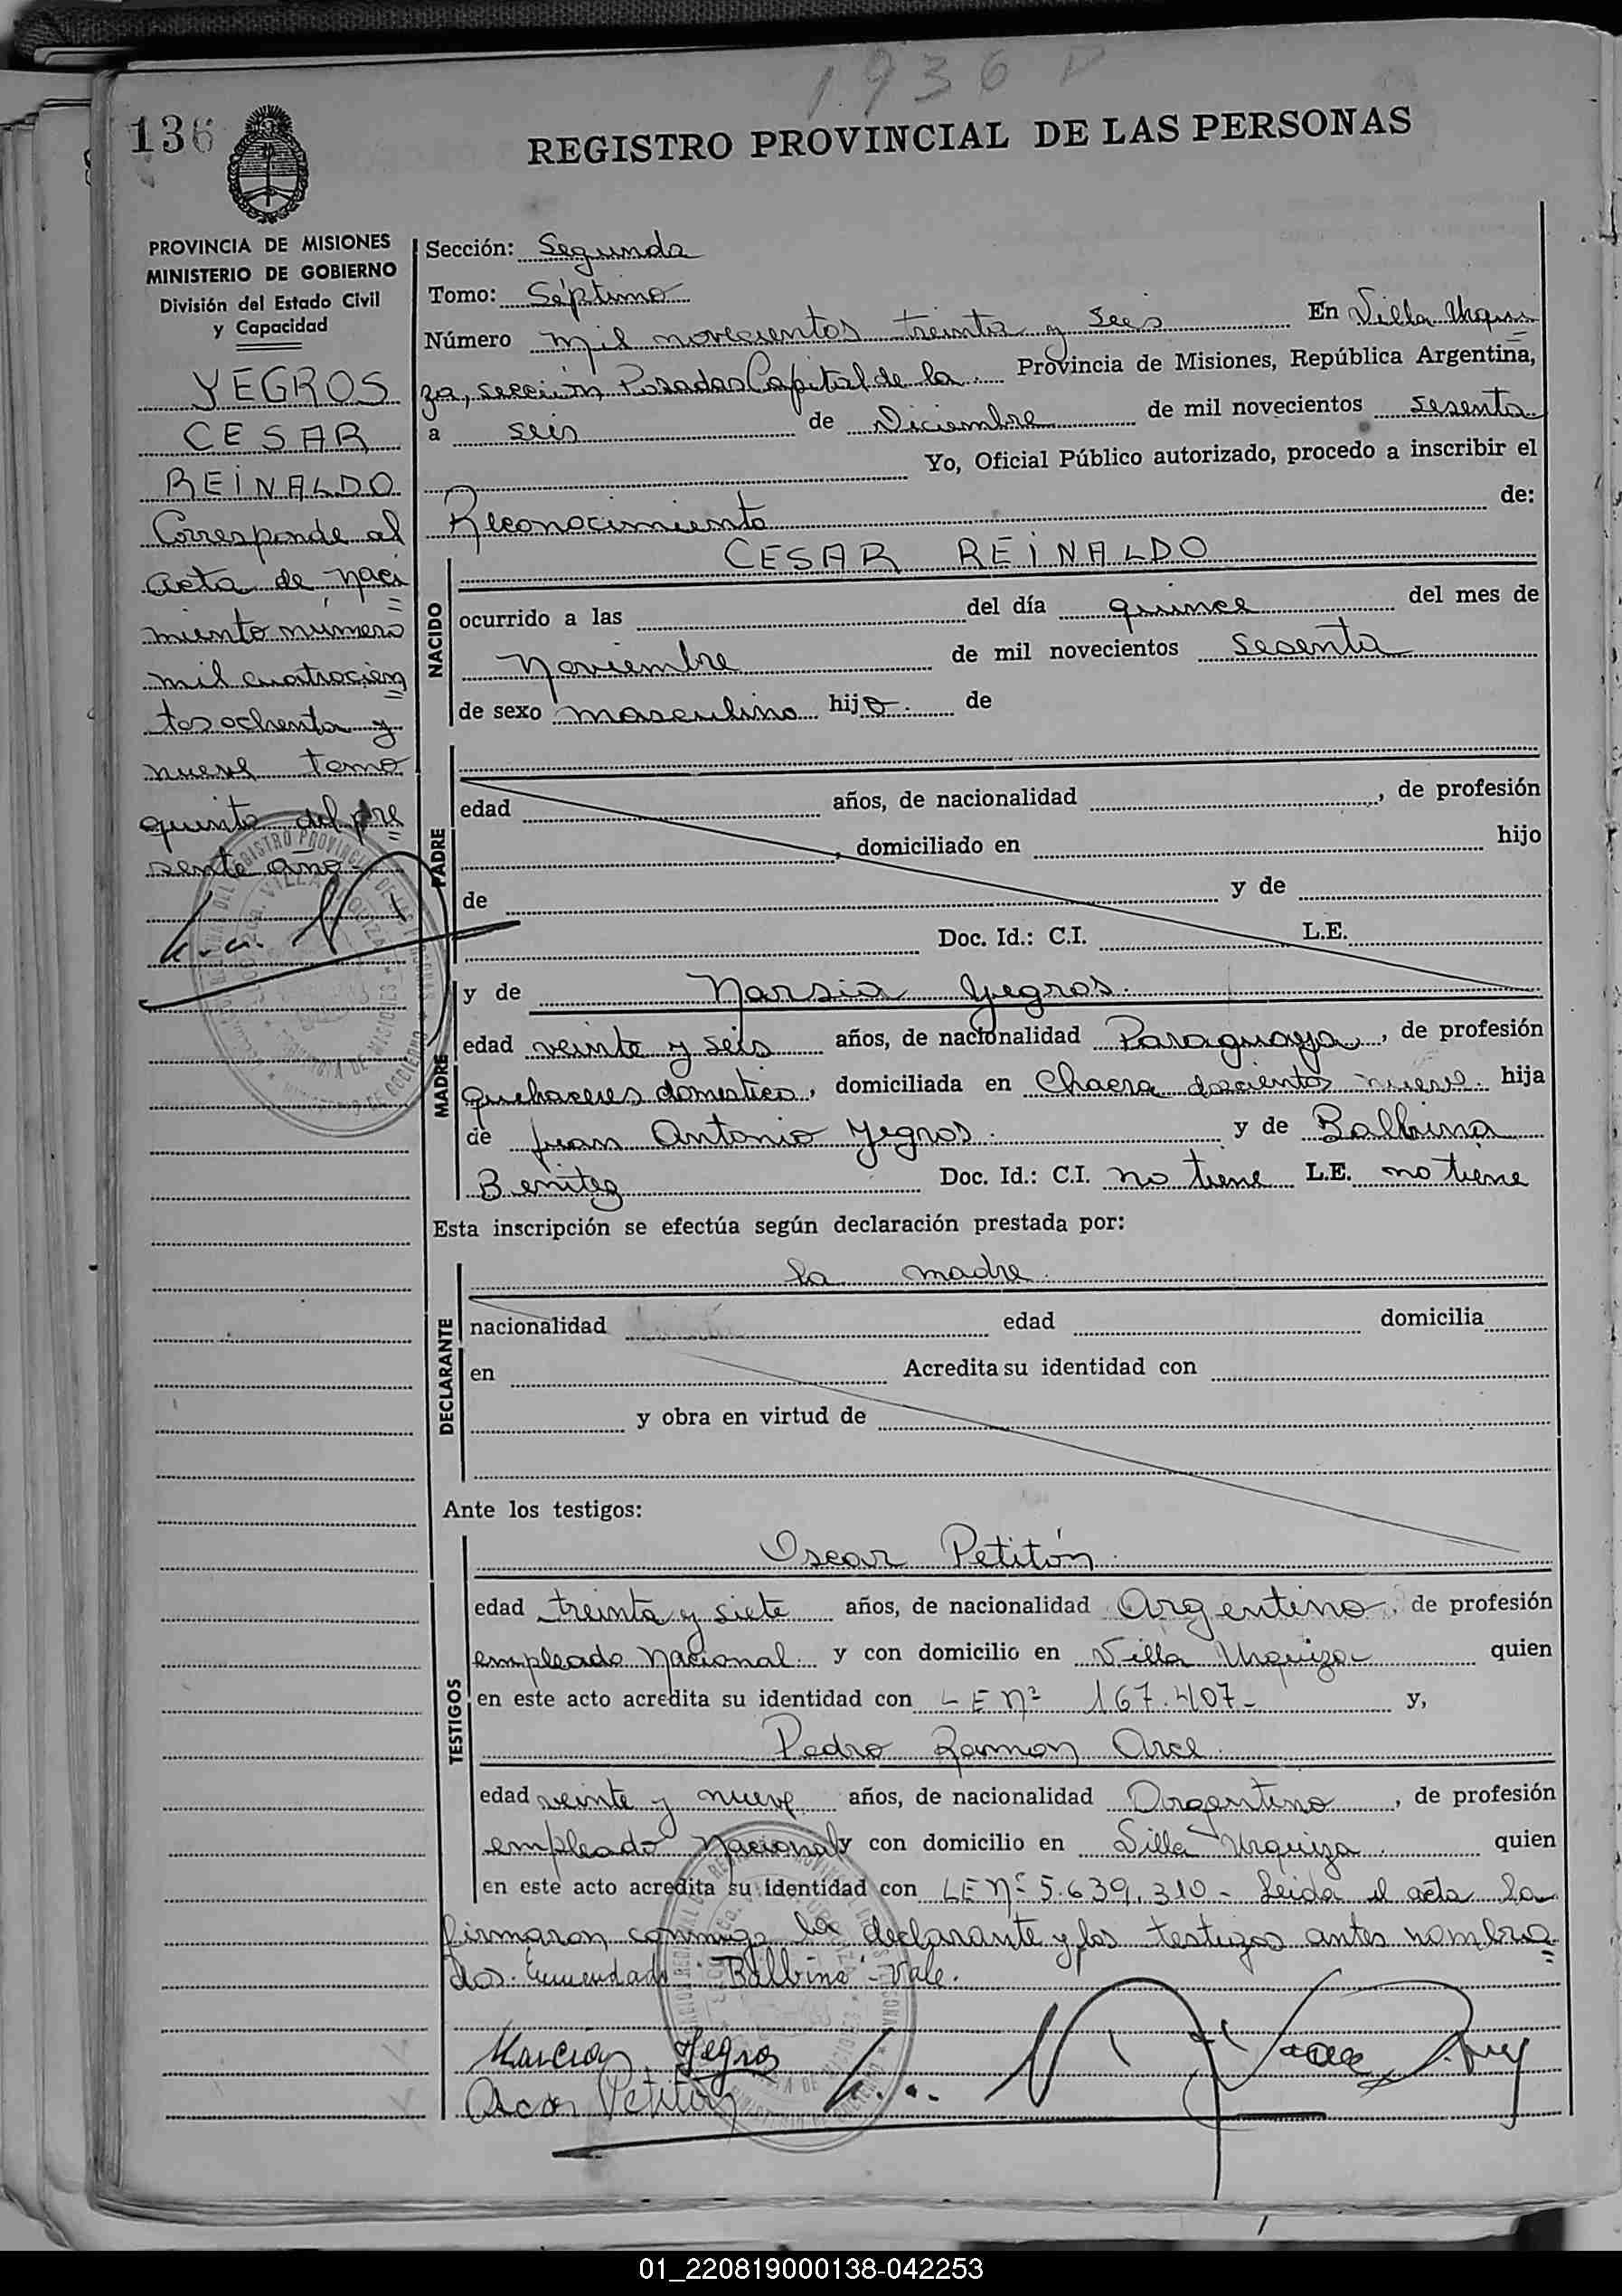 1936 D
136
REGISTRO PROVINCIAL DE LAS PERSONAS
PROVINCIA DE MISIONES
MINISTERIO DE GOBIERNO
División del Estado Civil
y Capacidad
YEGROS
CESAR
REINALDO
Corresponde al
acta de naci
miento número
mil cuatrocien
tos ochenta y
nueve tomo
quinto del pre
sente año
Sección: Segunda
Tomo: Séptimo
Número mil novecientos treinta y seis En Villa Urqui
za, sección Posadas Capital de la Provincia de Misiones, República Argentina,
a seis de Diciembre de mil novecientos sesenta
Yo, Oficial Público autorizado, procedo a inscribir el
Reconocimiento de:
NACIDO
CESAR REINALDO
ocurrido a las del día quince del mes de
Noviembre de mil novecientos sesenta
de sexo masculino hijo de
PADRE
edad años, de nacionalidad , de profesión
, domiciliado en hijo
de y de
Doc. Id.: C.I. L.E.
MADRE
y de Narsia Yegros.
edad veinte y seis años, de nacionalidad Paraguaya, de profesión
quehaceres domestico, domiciliada en Chacra doscientos nueve. hija
de Juan Antonio Yegros. y de Balbina
Benitez Doc. Id.: C.I. no tiene L.E. no tiene
Esta inscripción se efectúa según declaración prestada por:
DECLARANTE
la madre.
nacionalidad edad domicilia
en Acredita su identidad con
y obra en virtud de
Ante los testigos:
TESTIGOS
Oscar Petitón.
edad treinta y siete años, de nacionalidad Argentino, de profesión
empleado Nacional. y con domicilio en Villa Urquiza quien
en este acto acredita su identidad con LE Nº 167.407- y,
Pedro Ramon Arce.
edad veinte y nueve años, de nacionalidad Argentino, de profesión
empleado Nacional y con domicilio en Villa Urquiza. quien
en este acto acredita su identidad con LE Nº 5.639.310- Leida el acta la
firmaron conmigo la declarante y los testigos antes nombra
dos. Enmendado "Balbina"- Vale.
Marcia Yegros
Oscar Petitón
01_220819000138-042253